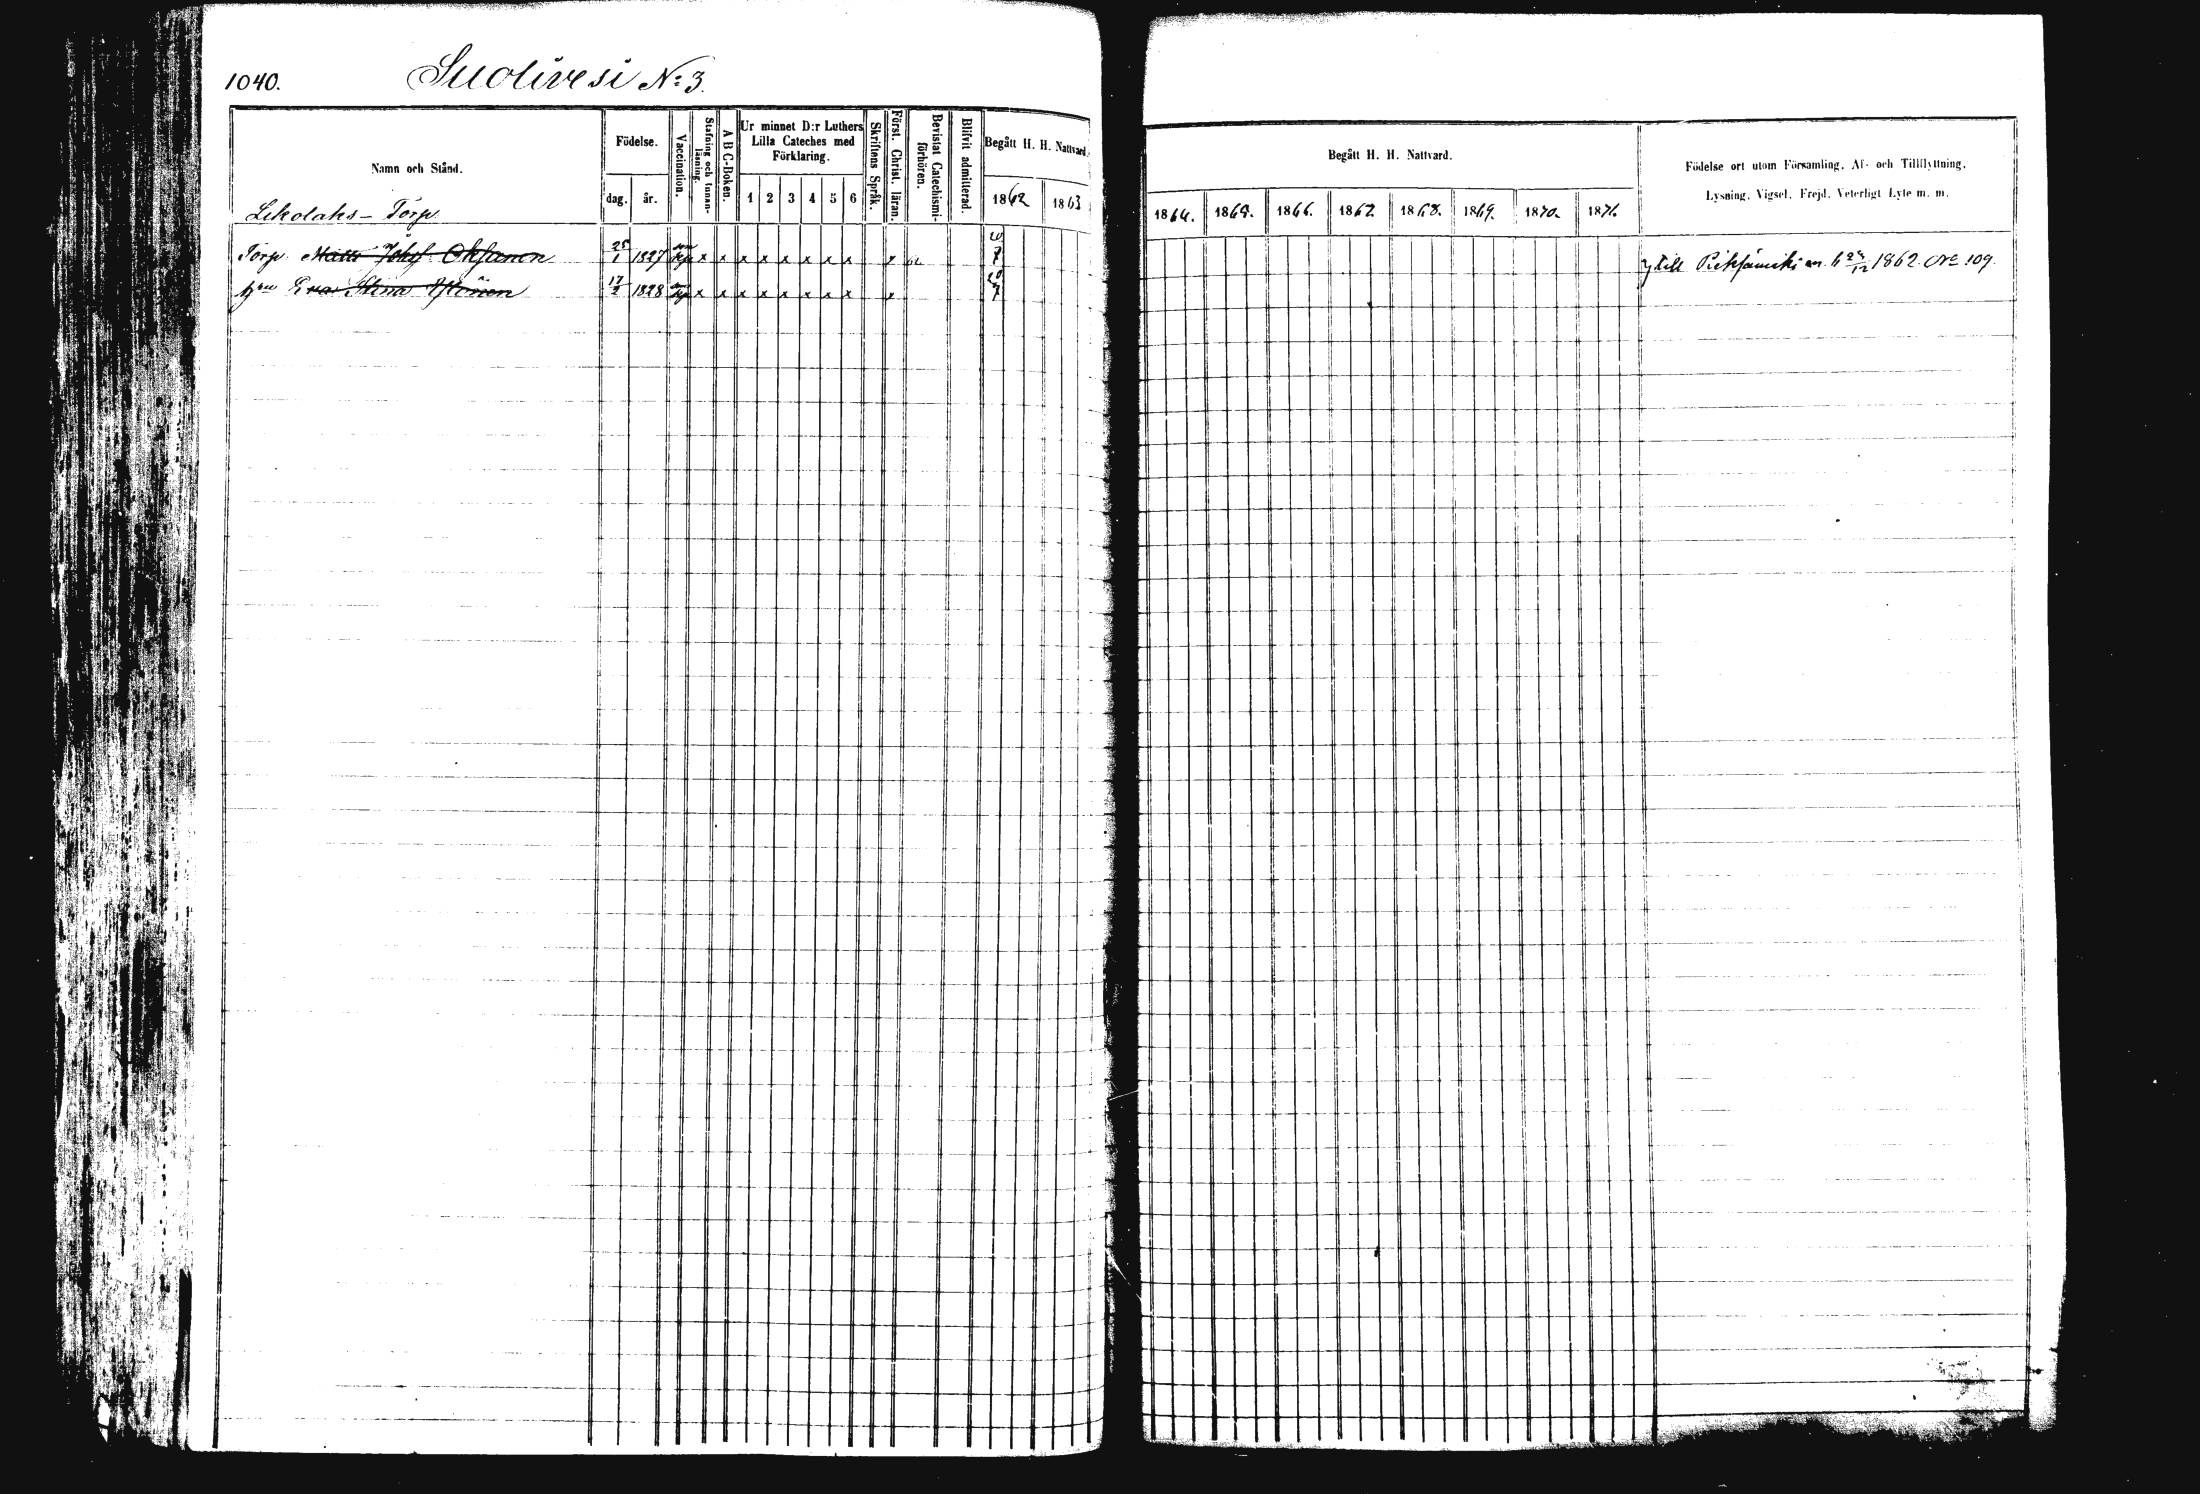 1040. Suolivesi No 3.
Namn och Stånd.
Födelse.
dag. år.
Vaccination.
Stafning och innanläsning.
A B C-Boken.
Ur minnet D:r Luthers
Lilla Cateches med
Förklaring.
1 2 3 4 5 6
Skriftens Språk.
Först. Christ. läran.
Bevistat Catechismiförhören.
Blifvit admitterad.
Begått H. H. Nattvard.
1862 1863
Lekolahs-Torp
Torp. Matts Johs Oksanen 25/1 1827 x x x x x x x x x 62 7
Eva Stina 17/2 1828 x x x x x x x x x 20/7
Begått H. H. Nattvard.
1864. 1865. 1866. 1867. 1868. 1869. 1870. 1871.
Födelse ort utom Församling, Af- och Tillflyttning,
Lysning, Vigsel, Frejd, Veterligt Lyte m. m.
till Pieksämäki 1862. No 109.